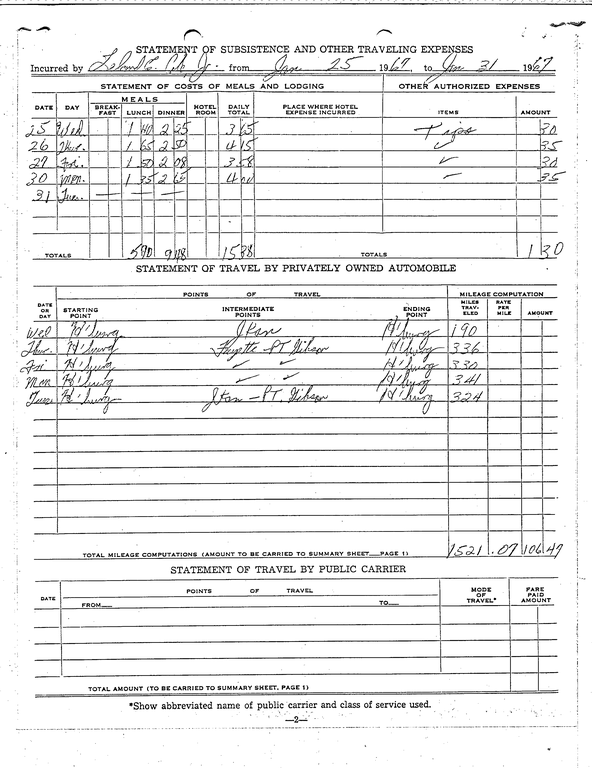 STATEMENT OF SUBSISTENCE AND OTHER TRAVELING EXPENSES
Incurred by Jr. from Jan. 25 1967, to Jan 31 1967
STATEMENT OF COSTS OF MEALS AND LODGING OTHER AUTHORIZED EXPENSES
DATE DAY MEALS BREAK-FAST LUNCH DINNER HOTEL ROOM DAILY TOTAL PLACE WHERE HOTEL EXPENSE INCURRED ITEMS AMOUNT
25 Wed. 1 40 2 25 3 65 Tips 30
26 Thur. 1 65 2 50 4 15 ✓ 35
27 Fri. 1 50 2 08 3 58 ✓ 30
30 Mon. 1 35 2 65 4 00 ✓ 35
31 Tue. — — —
TOTALS 5 90 9 48 15 38 TOTALS 1 30
STATEMENT OF TRAVEL BY PRIVATELY OWNED AUTOMOBILE
POINTS OF TRAVEL MILEAGE COMPUTATION
DATE OR DAY STARTING POINT INTERMEDIATE POINTS ENDING POINT MILES TRAV-ELED RATE PER MILE AMOUNT
Wed H'burg Jkan H'burg 190
Thur. H'burg Fayette - PT. Gibson H'burg 336
Fri H'burg ✓ ✓ H'burg 330
Mon. H'burg ✓ ✓ H'burg 341
Tues. H'burg Jkan - PT. Gibson H'burg 324
TOTAL MILEAGE COMPUTATIONS (AMOUNT TO BE CARRIED TO SUMMARY SHEET—PAGE 1) 1521 .07 106 47
STATEMENT OF TRAVEL BY PUBLIC CARRIER
DATE POINTS OF TRAVEL MODE OF TRAVEL* FARE PAID AMOUNT
FROM— TO—
TOTAL AMOUNT (TO BE CARRIED TO SUMMARY SHEET. PAGE 1)
*Show abbreviated name of public carrier and class of service used.
—2—